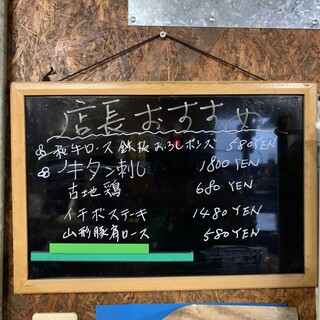 店長おすすめ
和牛ロース鉄板おろしポンズ 580YEN
牛タン刺し 1800YEN
古地鶏 680YEN
イチボステーキ 1480YEN
山形豚肩ロース 580YEN